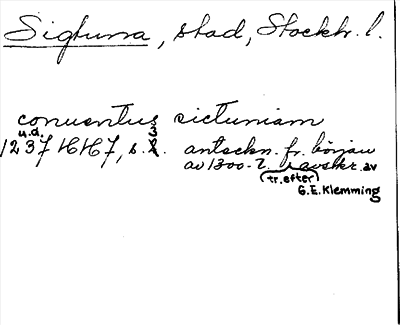 Sigtuna, stad, Stockh. l.
conventus sictuniam
u.d. 3
1237 HH7, s. 2. anteckn. fr. början
av 1300-t. i avskr. av
(tr. efter)
G.E. Klemming